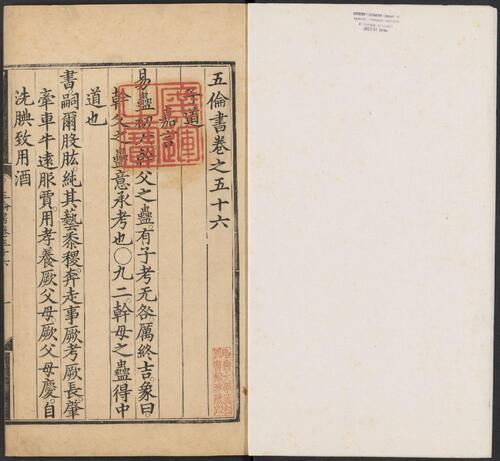 五倫書卷之五十六
子道
嘉言
易蠱初六幹父之蠱有子考无咎厲終吉象曰
幹父之蠱意承考也〇九二幹母之蠱得中
道也
書嗣爾股肱純其藝黍稷奔走事厥考厥長肇
牽車牛遠服賈用孝養厥父母厥父母慶自
洗腆致用酒